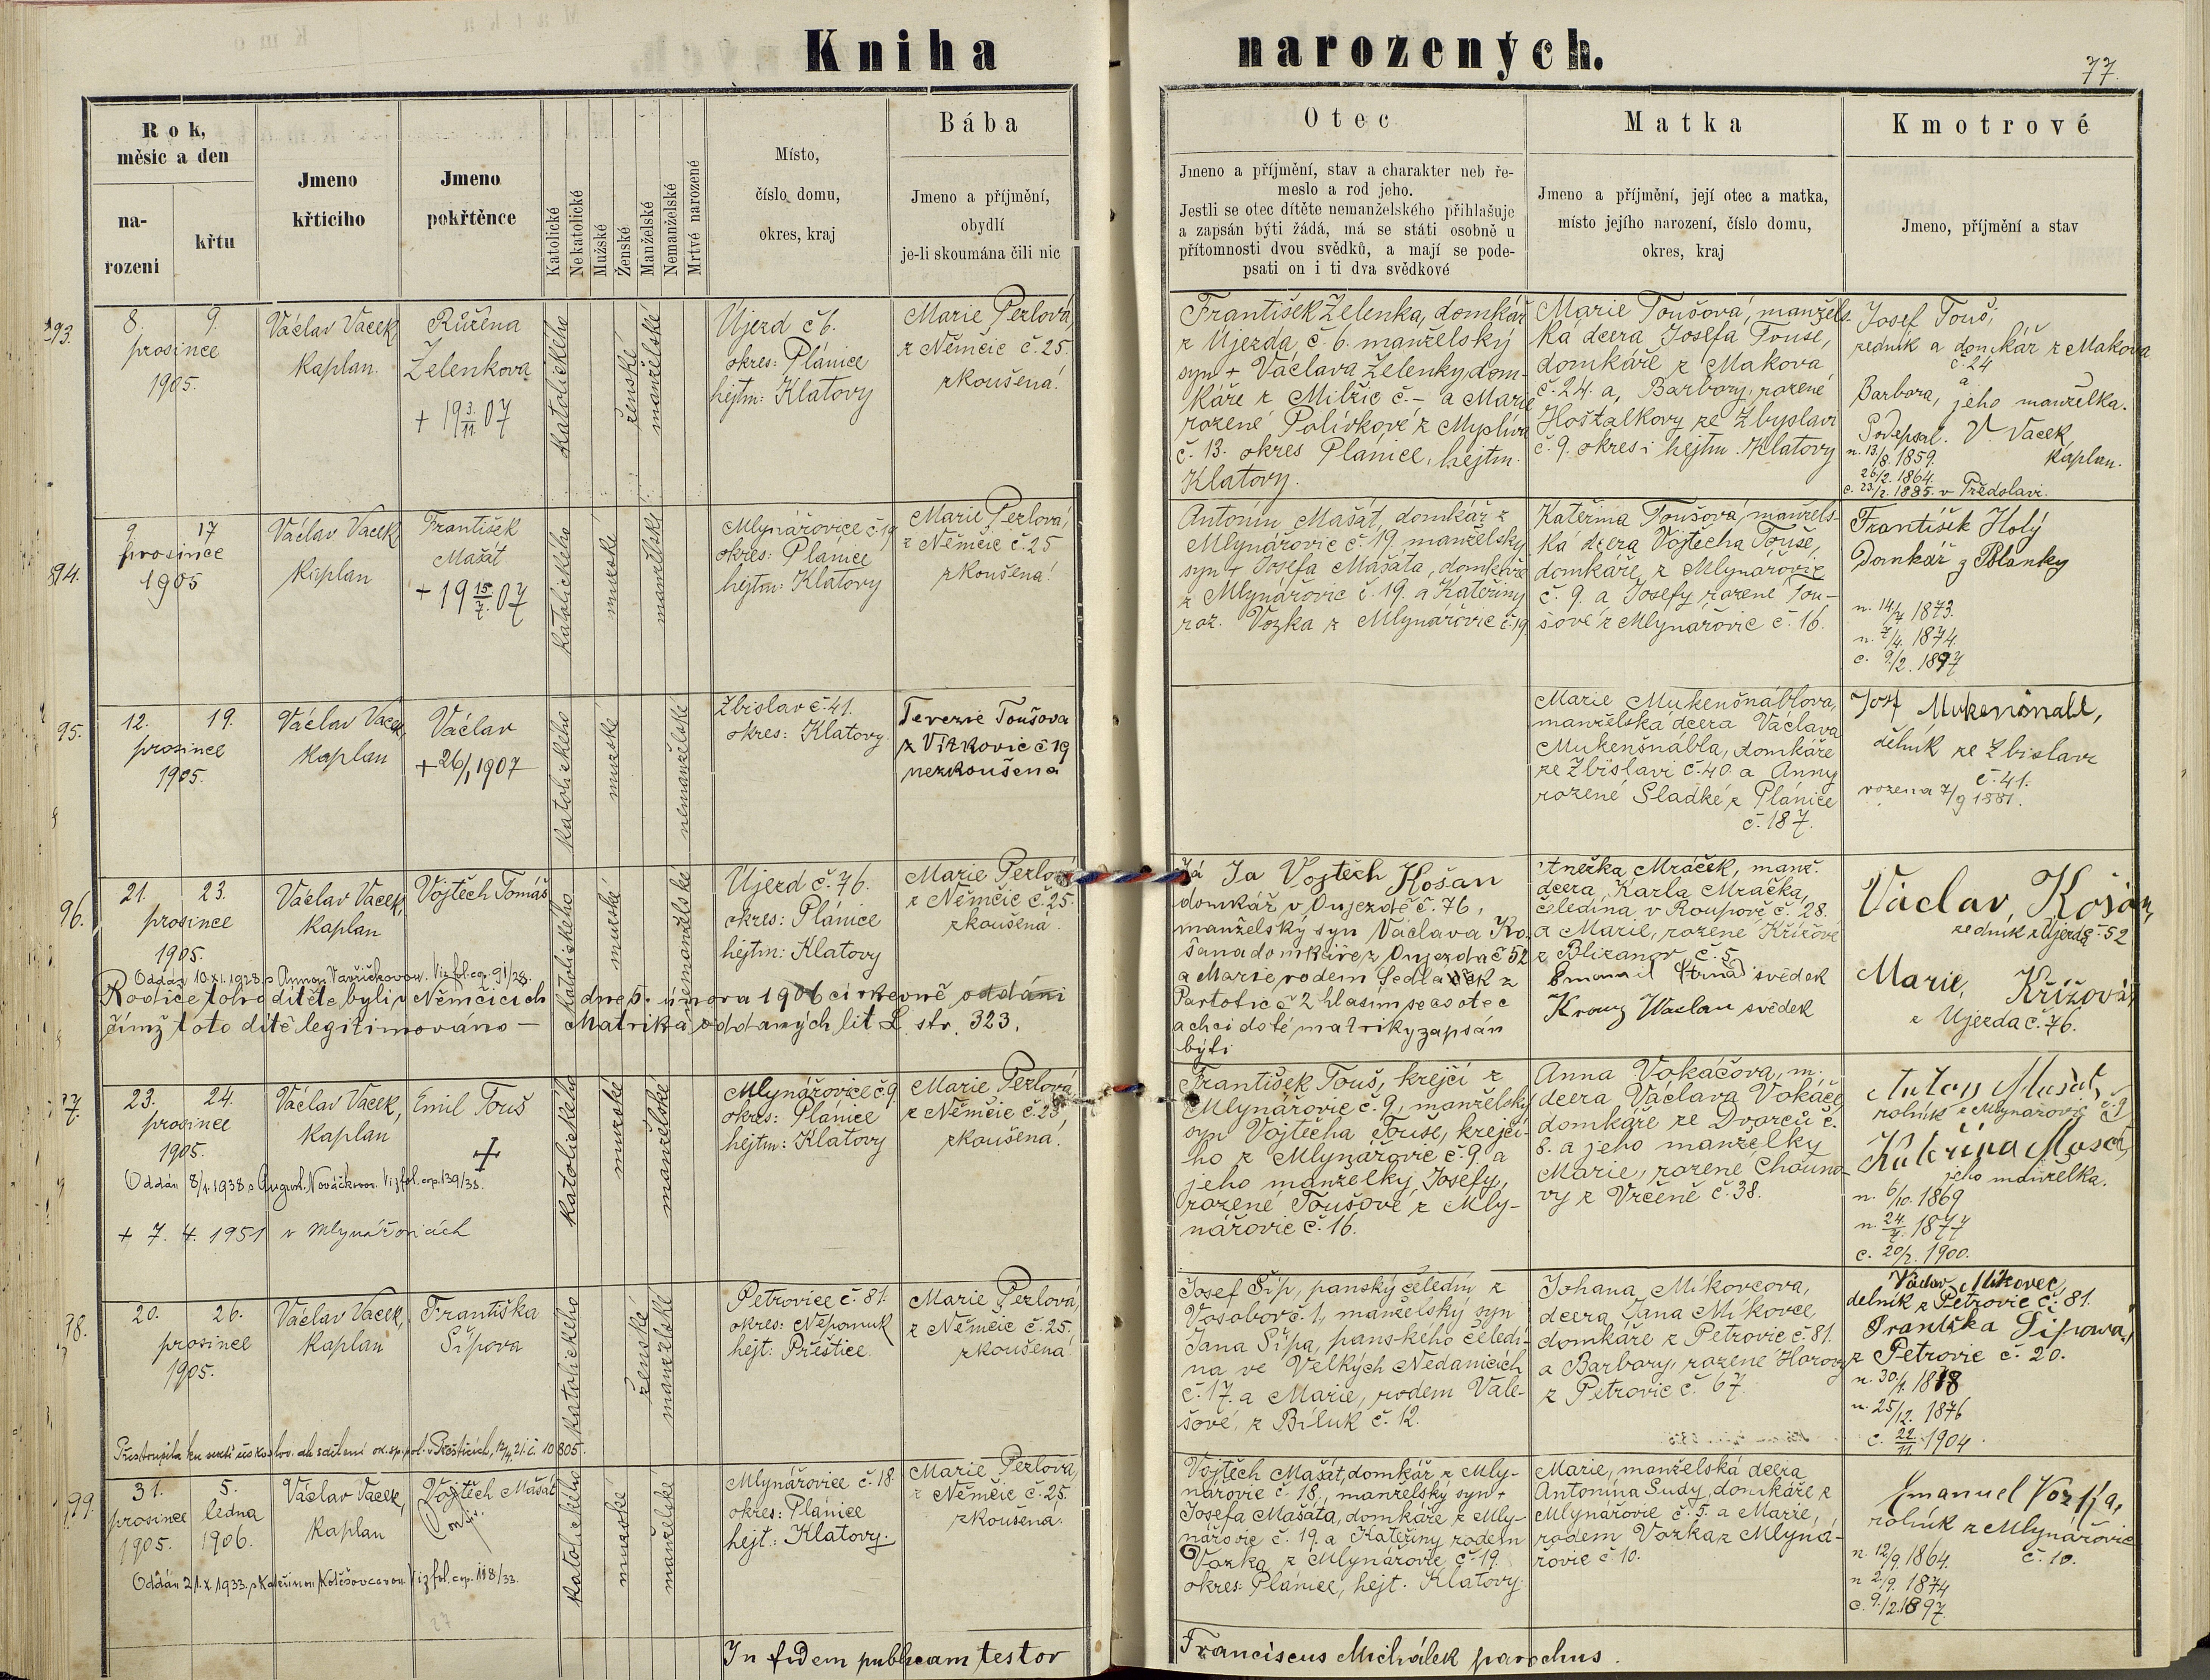 Kniha narozených.
77.
Rok,
měsíc a den
na-
rození
křtu
Jmeno
křtícího
Jmeno
pokřtěnce
Katolické
Nekatolické
Mužské
Ženské
Manželské
Nemanželské
Mrtvé narozené
Místo,
číslo domu,
okres, kraj
Bába
Jmeno a příjmění,
obydlí
je-li skoumána čili nic
Otec
Jmeno a příjmění, stav a charakter neb ře-
meslo a rod jeho.
Jestli se otec dítěte nemanželského přihlašuje
a zapsán býti žádá, má se státi osobně u
přítomnosti dvou svědků, a mají se pode-
psati on i ti dva svědkové
Matka
Jmeno a příjmění, její otec a matka,
místo jejího narození, číslo domu,
okres, kraj
Kmotrové
Jmeno, příjmění a stav
93.
8. 9.
prosince
1905.
Václav Vacek,
kaplan.
Růžena
Želenkova
+ 19 3./11. 07
katolického
ženské
manželské
Ujezd č 6.
okres: Plánice
hejtm: Klatovy
Marie Perlová,
z Němčic č. 25.
zkoušená.
František Zelenka, domkář
z Újezda č. 6. manželský
syn + Václava Zelenky, dom-
káře z Milžic č. – a Marie
rozené Polívkové z Myslíva
č. 13. okres Plánice, hejtm.
Klatovy.
Marie Toušová, manžels-
ká dcera Josefa Touše,
domkáře z Makova
č. 24. a, Barbory, rozené
Hošťalkovy ze Zbyslavi
č. 9. okres i hejtm. Klatovy
Josef Touš,
zedník a domkář z Makova
č. 24
a
Barbora, jeho manželka.
Podepsal. V. Vacek,
kaplan.
n. 13/8. 1859.
26/2. 1864.
c. 23/2. 1885. v Předslavi.
94.
9 17
prosince
1905
Václav Vacek,
kaplan
František
Mašát
+ 19 15./7. 07
katolického
mužské
manželské
Mlynářovice č. 19
okres: Plánice
hejtm: Klatovy
Marie Perlová,
z Němčic č. 25
zkoušená.
Antonín Mašát, domkář z
Mlynářovic č. 19. manželský
syn + Josefa Mašáta, domkáře
z Mlynářovic č. 19. a Kateřiny
roz. Vozka z Mlynářovic č. 19
Kateřina Toušová, manžels-
ká dcera Vojtěcha Touše,
domkáře z Mlynářovic
č. 9. a Josefy rozené Tou-
šové z Mlynářovic č. 16.
František Holý
Domkář z Blanky
n. 14/7 1873.
n. 7/4. 1874.
c. 9/2. 1897
95.
12. 19.
prosince
1905.
Václav Vacek,
kaplan
Václav
+ 26/1 1907
katolického
mužské
nemanželské
Zbislav č. 41.
okres: Klatovy.
Terezie Toušova
z Vítkovic č 19
nezkoušena
Marie Mukenšnáblova,
manželská dcera Václava
Mukenšnábla, domkáře
ze Zbislavi č. 40. a Anny
rozené Sladké z Plánice
č. 187.
Josef Mukenšnabl,
dělník ze Zbislavi
č. 41.
rozena 7/9 1881.
96.
21. 23.
prosince
1905.
Václav Vacek,
kaplan
Vojtěch Tomáš
katolického
mužské
nemanželské
Ujezd č. 76.
okres: Plánice
hejtm: Klatovy
Marie Perlová
z Němčic č. 25.
zkoušená.
Oddán 10. XI. 1928 s Annou Vavřičkovou. Viz fol. cop. 91/28.
Rodiče toho dítěte byli v Němčicích dne 5. února 1906 církevně oddáni
čímž toto dítě legitimováno – Matrika oddaných lit L. str. 323.
Já Ja Vojtěch Košan
domkář v Oujezdě č. 76,
manželský syn Václava Ko-
šana domkáře z Oujezda č 52
a Marie rodem Sedlaček z
Partoltic č 2 hlasim se co otec
a chci do té matriky zapsán
býti
Anežka Mráček, manž.
dcera Karla Mráčka,
čeledína v Roupově č. 28.
a Marie, rozené Křížové
z Blizanov č. 5.
svědek
Kraus Waclav svědek
Václav Košán,
zedník z Újezda č 52
Marie Křížová,
z Ujezda č. 76.
97.
23. 24.
prosince
1905.
Václav Vacek,
kaplan
Emil Touš
+
katolického
mužské
manželské
Mlynářovice č. 9
okres: Plánice
hejtm: Klatovy
Marie Perlová
z Němčic č. 25,
zkoušená.
Oddán 8/1. 1938 s August. Nováčkovou. Viz fol. cop. 139/38.
+ 7. 4. 1951 v Mlynářovicích
František Touš, krejčí z
Mlynářovic č. 9, manželský
syn Vojtěcha Touše, krejčí-
ho z Mlynářovic č. 9. a
jeho manželky Josefy,
rozené Toušové z Mly-
nářovic č. 16.
Anna Vokáčova, m.
dcera Václava Vokáče
domkáře ze Dvorců č.
8. a jeho manželky
Marie, rozené Chouno-
vy z Vrčeně č. 38.
Anton Mašát,
rolník z Mlynářovic č. 9
Kateřina Mašát,
jeho manželka.
n. 6/10. 1869
n. 24./7. 1877
c. 20/2. 1900.
98.
20. 26.
prosince
1905.
Václav Vacek,
kaplan
Františka
Šípova
katolického
ženské
manželské
Petrovice č. 81.
okres: Nepomuk
hejt: Přeštice.
Marie Perlová,
z Němčic č. 25.
zkoušená.
Přestoupila ku sektě českoslov. dle sdělení ok. sp. pol. v Přešticích, 12/4. 21. č. 10805.
Josef Šíp, panský čeledín z
Vosobor č. 1, manželský syn
Jana Šípa, panského čeledí-
na ve Velkých Nedanicích
č. 17. a Marie, rodem Vale-
šové, z Biluk č. 12.
Johana Mikovcova,
dcera Jana Mikovce,
domkáře z Petrovic č. 81.
a Barbory, rozené Horovy
z Petrovic č. 67.
Václav Mikovec,
delník z Petrovic č. 81.
Františka Šipowa,
z Petrovic č. 20.
n. 30/4. 1878
n. 25/12. 1876
c. 22./11. 1904.
99.
31. 5.
prosince ledna
1905. 1906.
Václav Vacek,
kaplan
Vojtěch Mašát
katolického
mužské
manželské
Mlynářovice č. 18
okres: Plánice
hejt.: Klatovy.
Marie Perlová,
z Němčic č. 25.
zkoušena.
Oddán 21. X. 1933. s Kateřinou Kolešovcovou. Viz fol. cop. 118/33.
27
Vojtěch Mašát, domkář z Mly-
nářovic č. 18, manželský syn +
Josefa Mašáta, domkáře z Mly-
nářovic č. 19. a Kateřiny rodem
Vozka z Mlynářovic č. 19.
okres: Plánice, hejt. Klatovy.
Marie, manželská dcera
Antonína Sudy, domkáře z
Mlynářovic č. 5. a Marie,
rodem Vozka z Mlyná-
řovic č. 10.
Emanuel Vozka,
rolník z Mlynářovic
č. 10.
n. 12/9. 1864.
n 2/9. 1874
c. 9./2. 1897.
In fidem publicam testor Franciscus Michálek parochus.